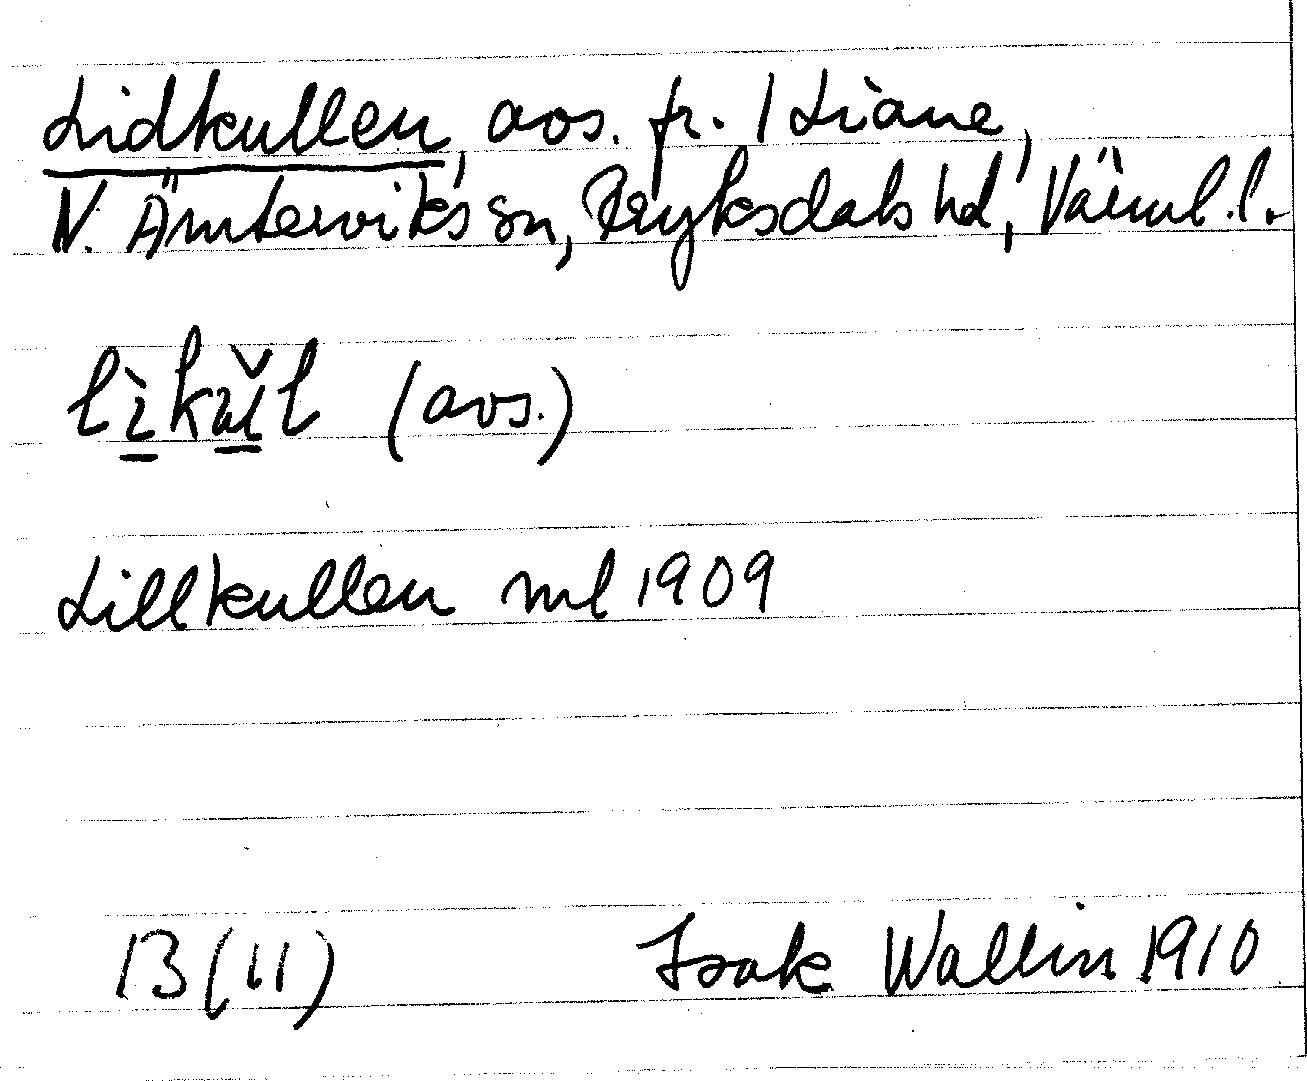 Lidkullen, avs. fr. 1 Liane,
N. Ämterviks sn, Fryksdals hd, Värml. l.
(avs.)
Lillkullen ml 1909
13 (11) Isak Wallin 1910